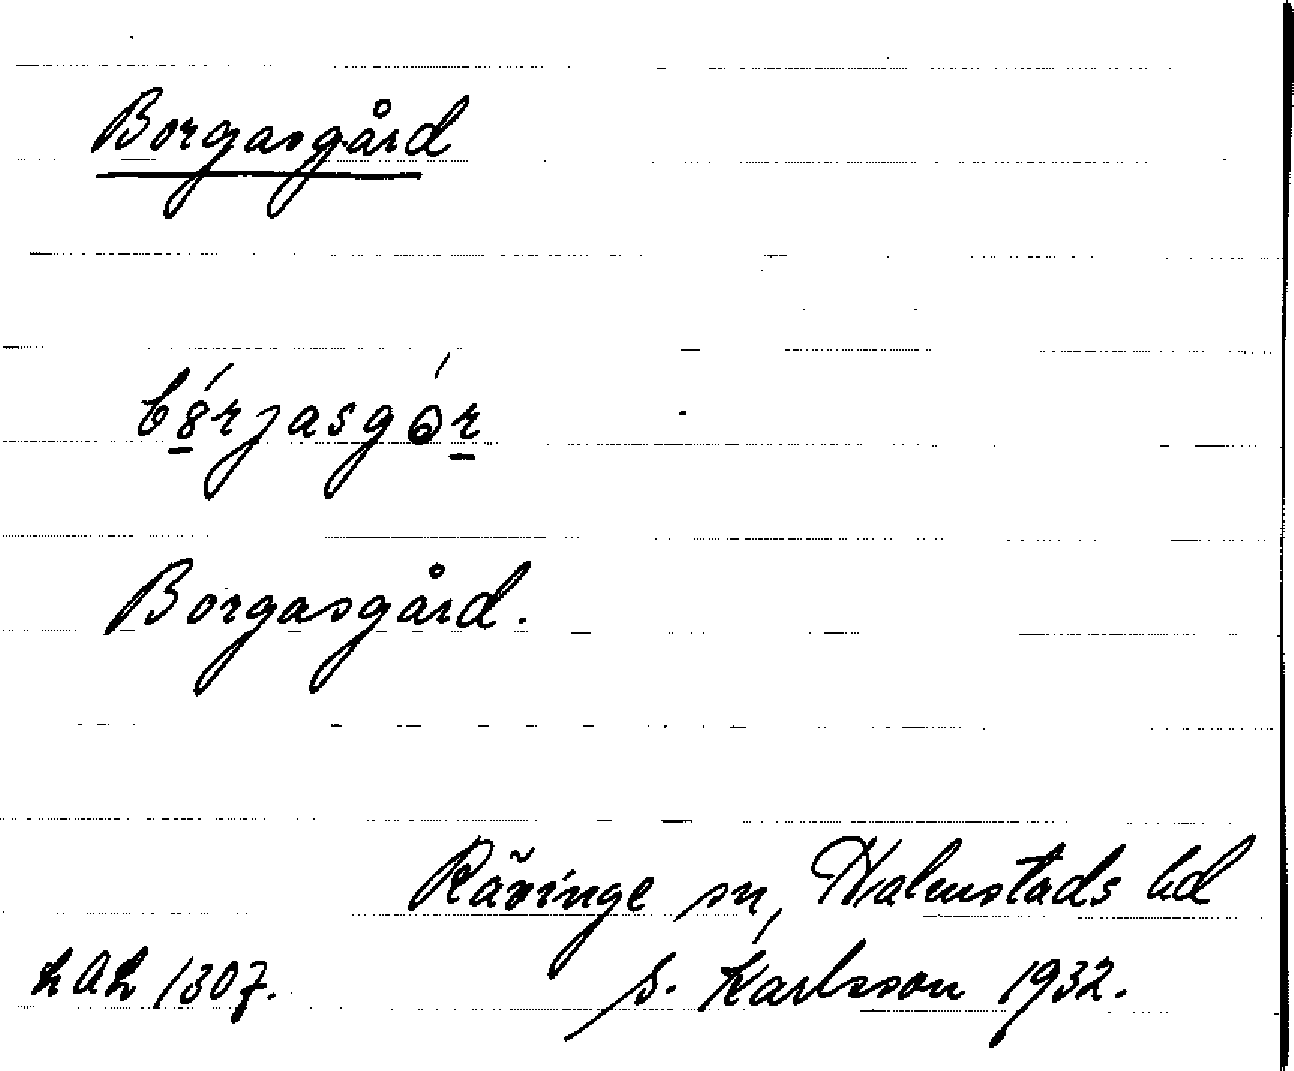 Borgasgård
bórjasgór
Borgasgård.
Rävinge sn, Halmstads hd
LAL 1307. S. Karlsson 1932.